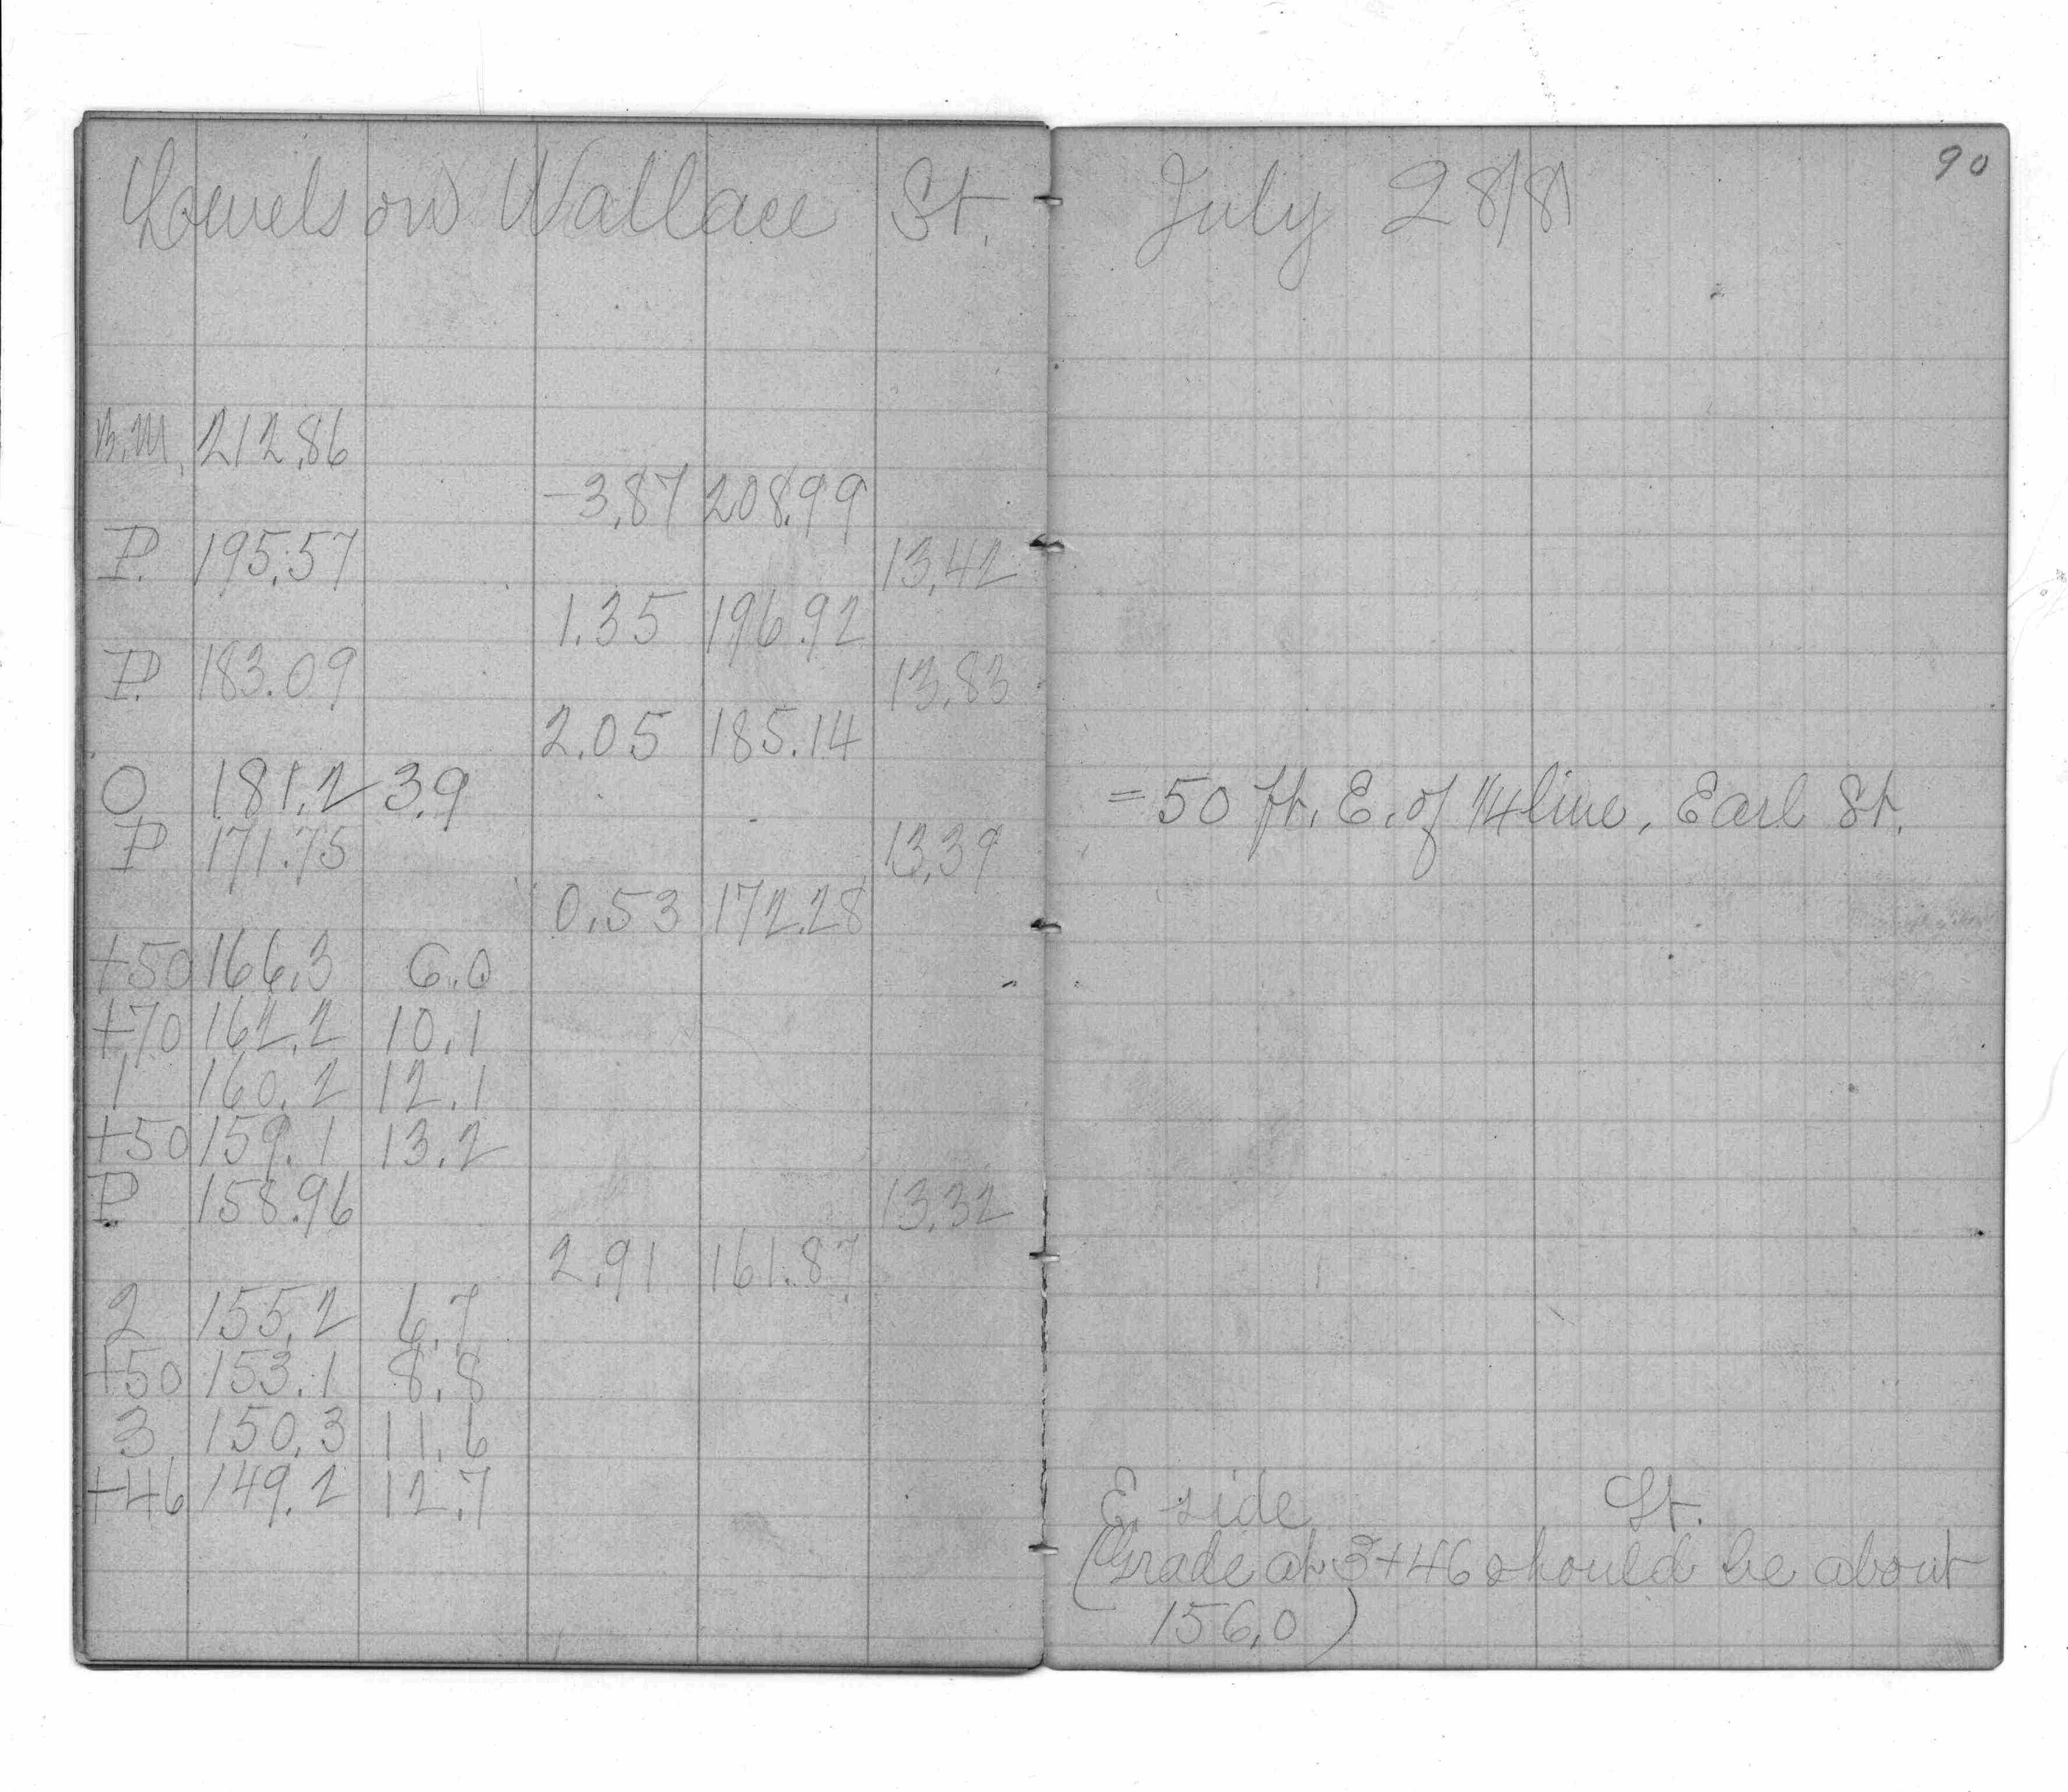 Levels on Wallace St.
B.M. 212.86
-3.87 208.99
P. 195.57 13.42
1.35 196.92
P. 183.09 13.83
2.05 185.14
0 181.2 3.9
P 171.75 13.39
0.53 172.28
+50 166.3 6.0
+70 162.2 10.1
1 160.2 12.1
+50 159.1 13.2
P. 158.96 13.32
2.91 161.87
2 155.2 6.7
+50 153.1 8.8
3 150.3 11.6
+46 149.2 12.7
90
July 28/81
= 50 ft. E. of 1/4 line, Earl St.
E. side St.
(Grade at 3+46 should be about
156.0)